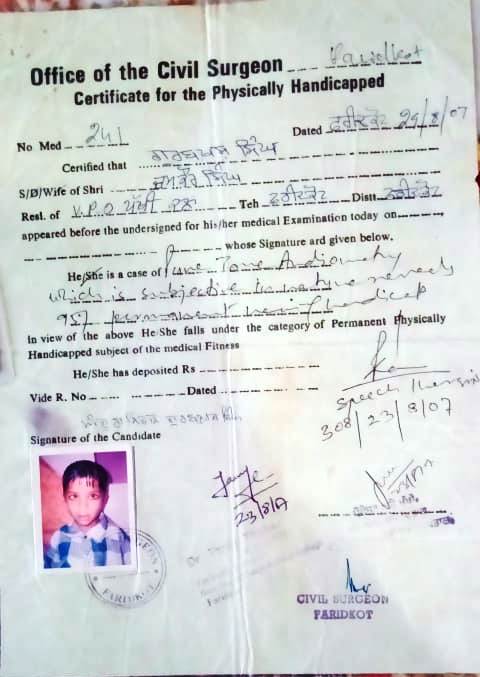 Office of the Civil Surgeon Faridkot
Certificate for the Physically Handicapped
No Med 241 Dated ਫਰੀਦਕੋਟ 29/8/07
Certified that ਗੁਰਬਖਸ਼ ਸਿੰਘ
S/D/Wife of Shri ਸਿੰਘ
Resl. of V.P.O ਪੱਖੀ ਕਲਾਂ Teh ਫਰੀਦਕੋਟ Distt ਫਰੀਦਕੋਟ
appeared before the undersigned for his/her medical Examination today on
whose Signature ard given below.
He/She is a case of Pure Tone Audiometry
which is subjective in nature reveals
permanent handicap
In view of the above He/She falls under the category of Permanent Physically
Handicapped subject of the medical Fitness
He/She has deposited Rs
Vide R. No Dated
Speech
308/23/8/07
Signature of the Candidate
23/8/07
FARIDKOT
CIVIL SURGEON
FARIDKOT